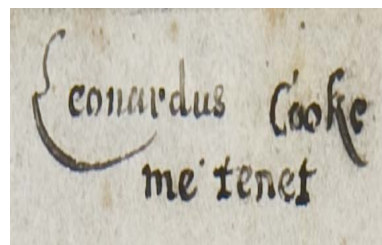 Leonardus Cooke
me tenet